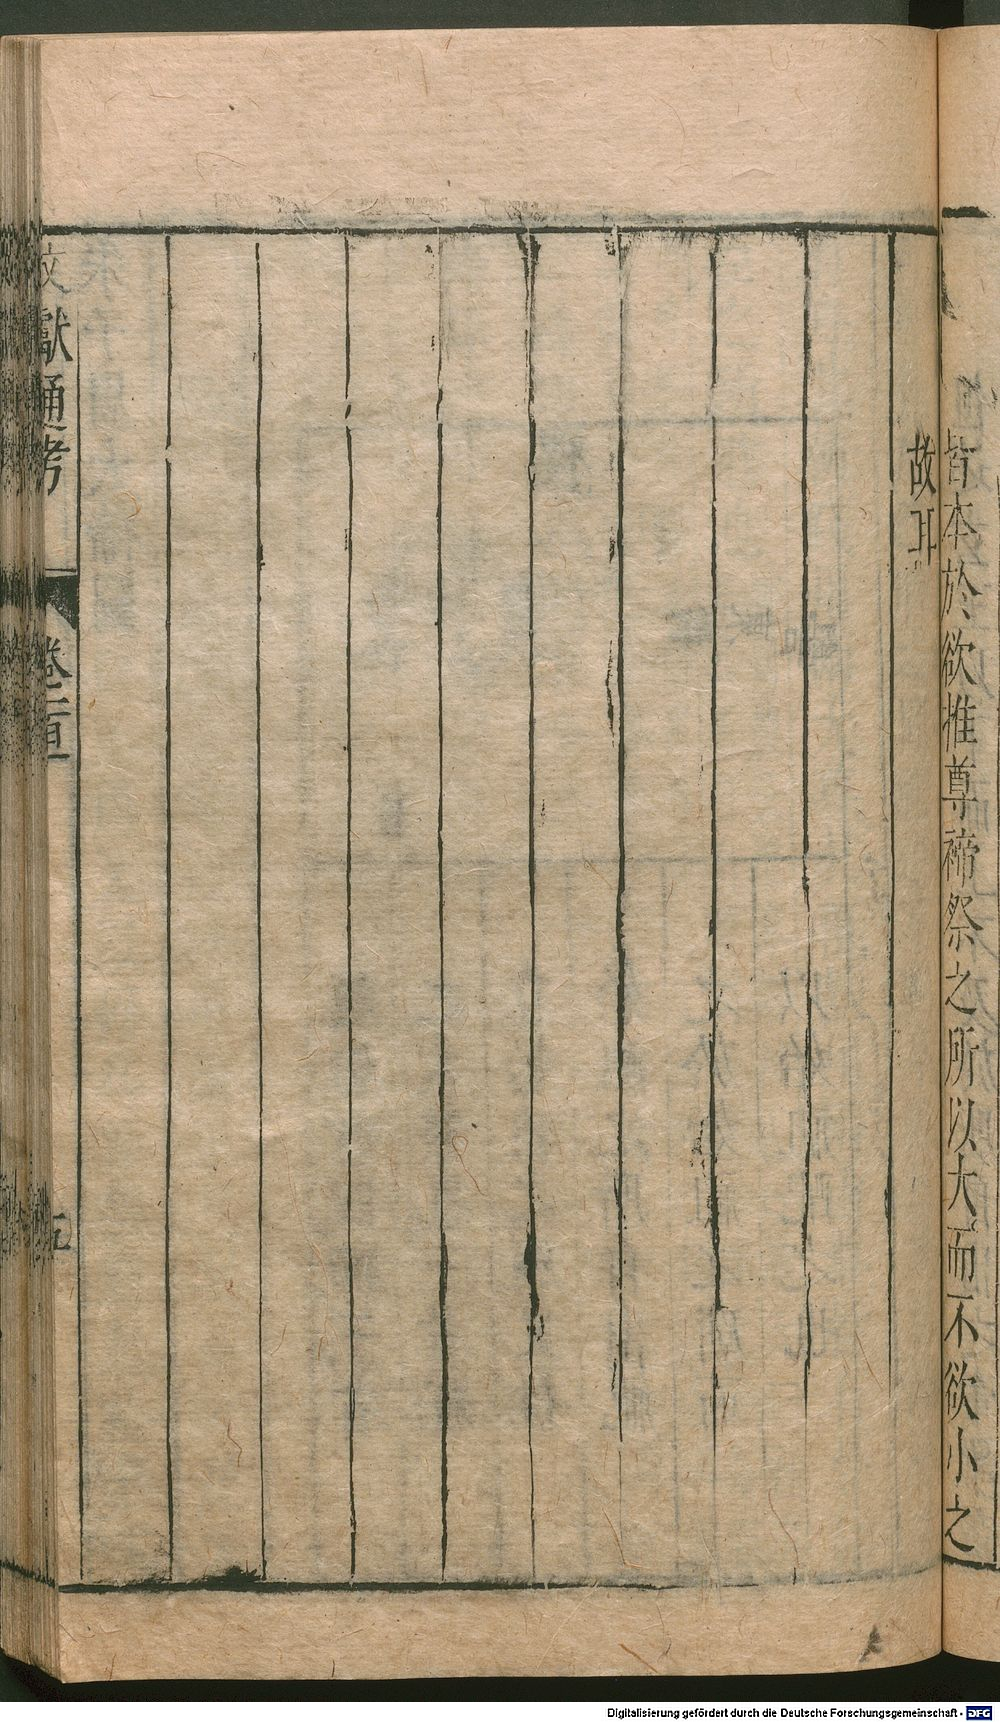 皆本於欲推尊禘祭之所以大而不欲小之
故耳
文獻通考
卷一百一
五
Digitalisierung gefördert durch die Deutsche Forschungsgemeinschaft - DFG